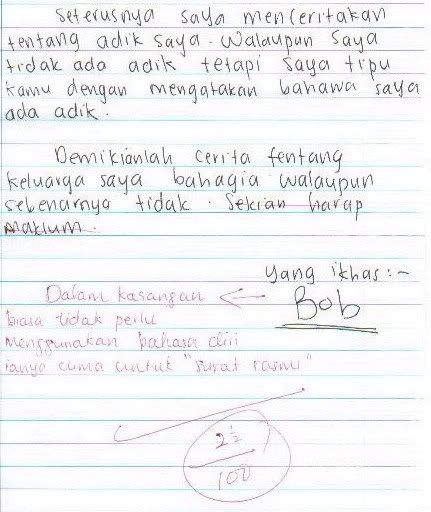 Seterusnya saya menceritakan
tentang adik saya. Walaupun saya
tidak ada adik tetapi saya tipu
kamu dengan mengatakan bahawa saya
ada adik.
Demikianlah cerita tentang
keluarga saya bahagia walaupun
sebenarnya tidak. Sekian harap
maklum.
Yang ikhas:-
Bob
Dalam kasangan
biasa tidak perlu
menggunakan bahasa diri
ianya cuma untuk "surat rasmi"
2 1/2
100